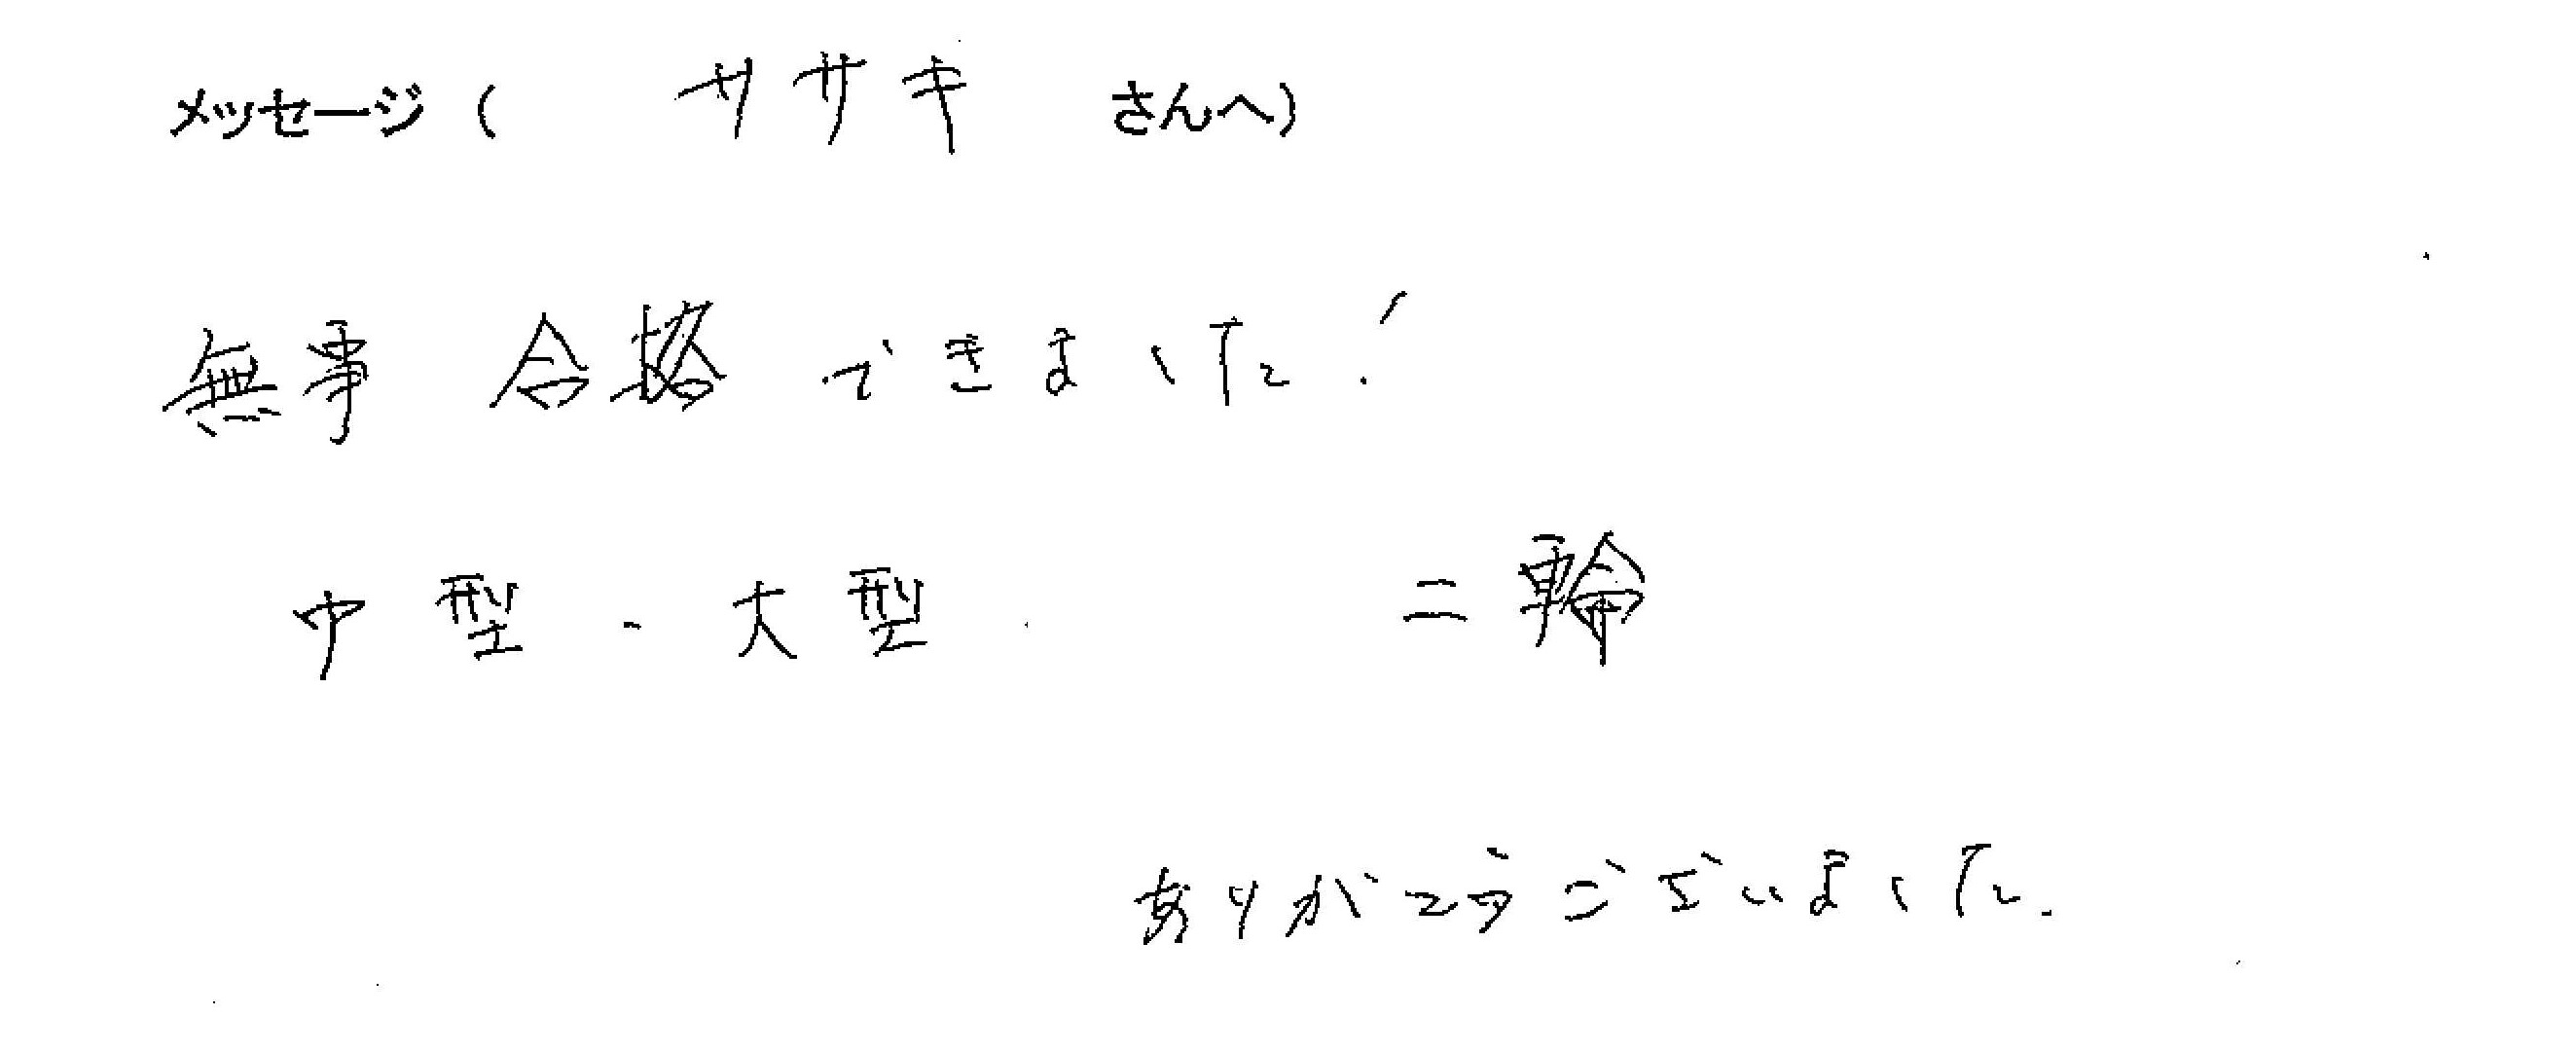 メッセージ（ ササキ さんへ）
無事 合格 できました！
中型・大型 二輪
ありがとうございました.